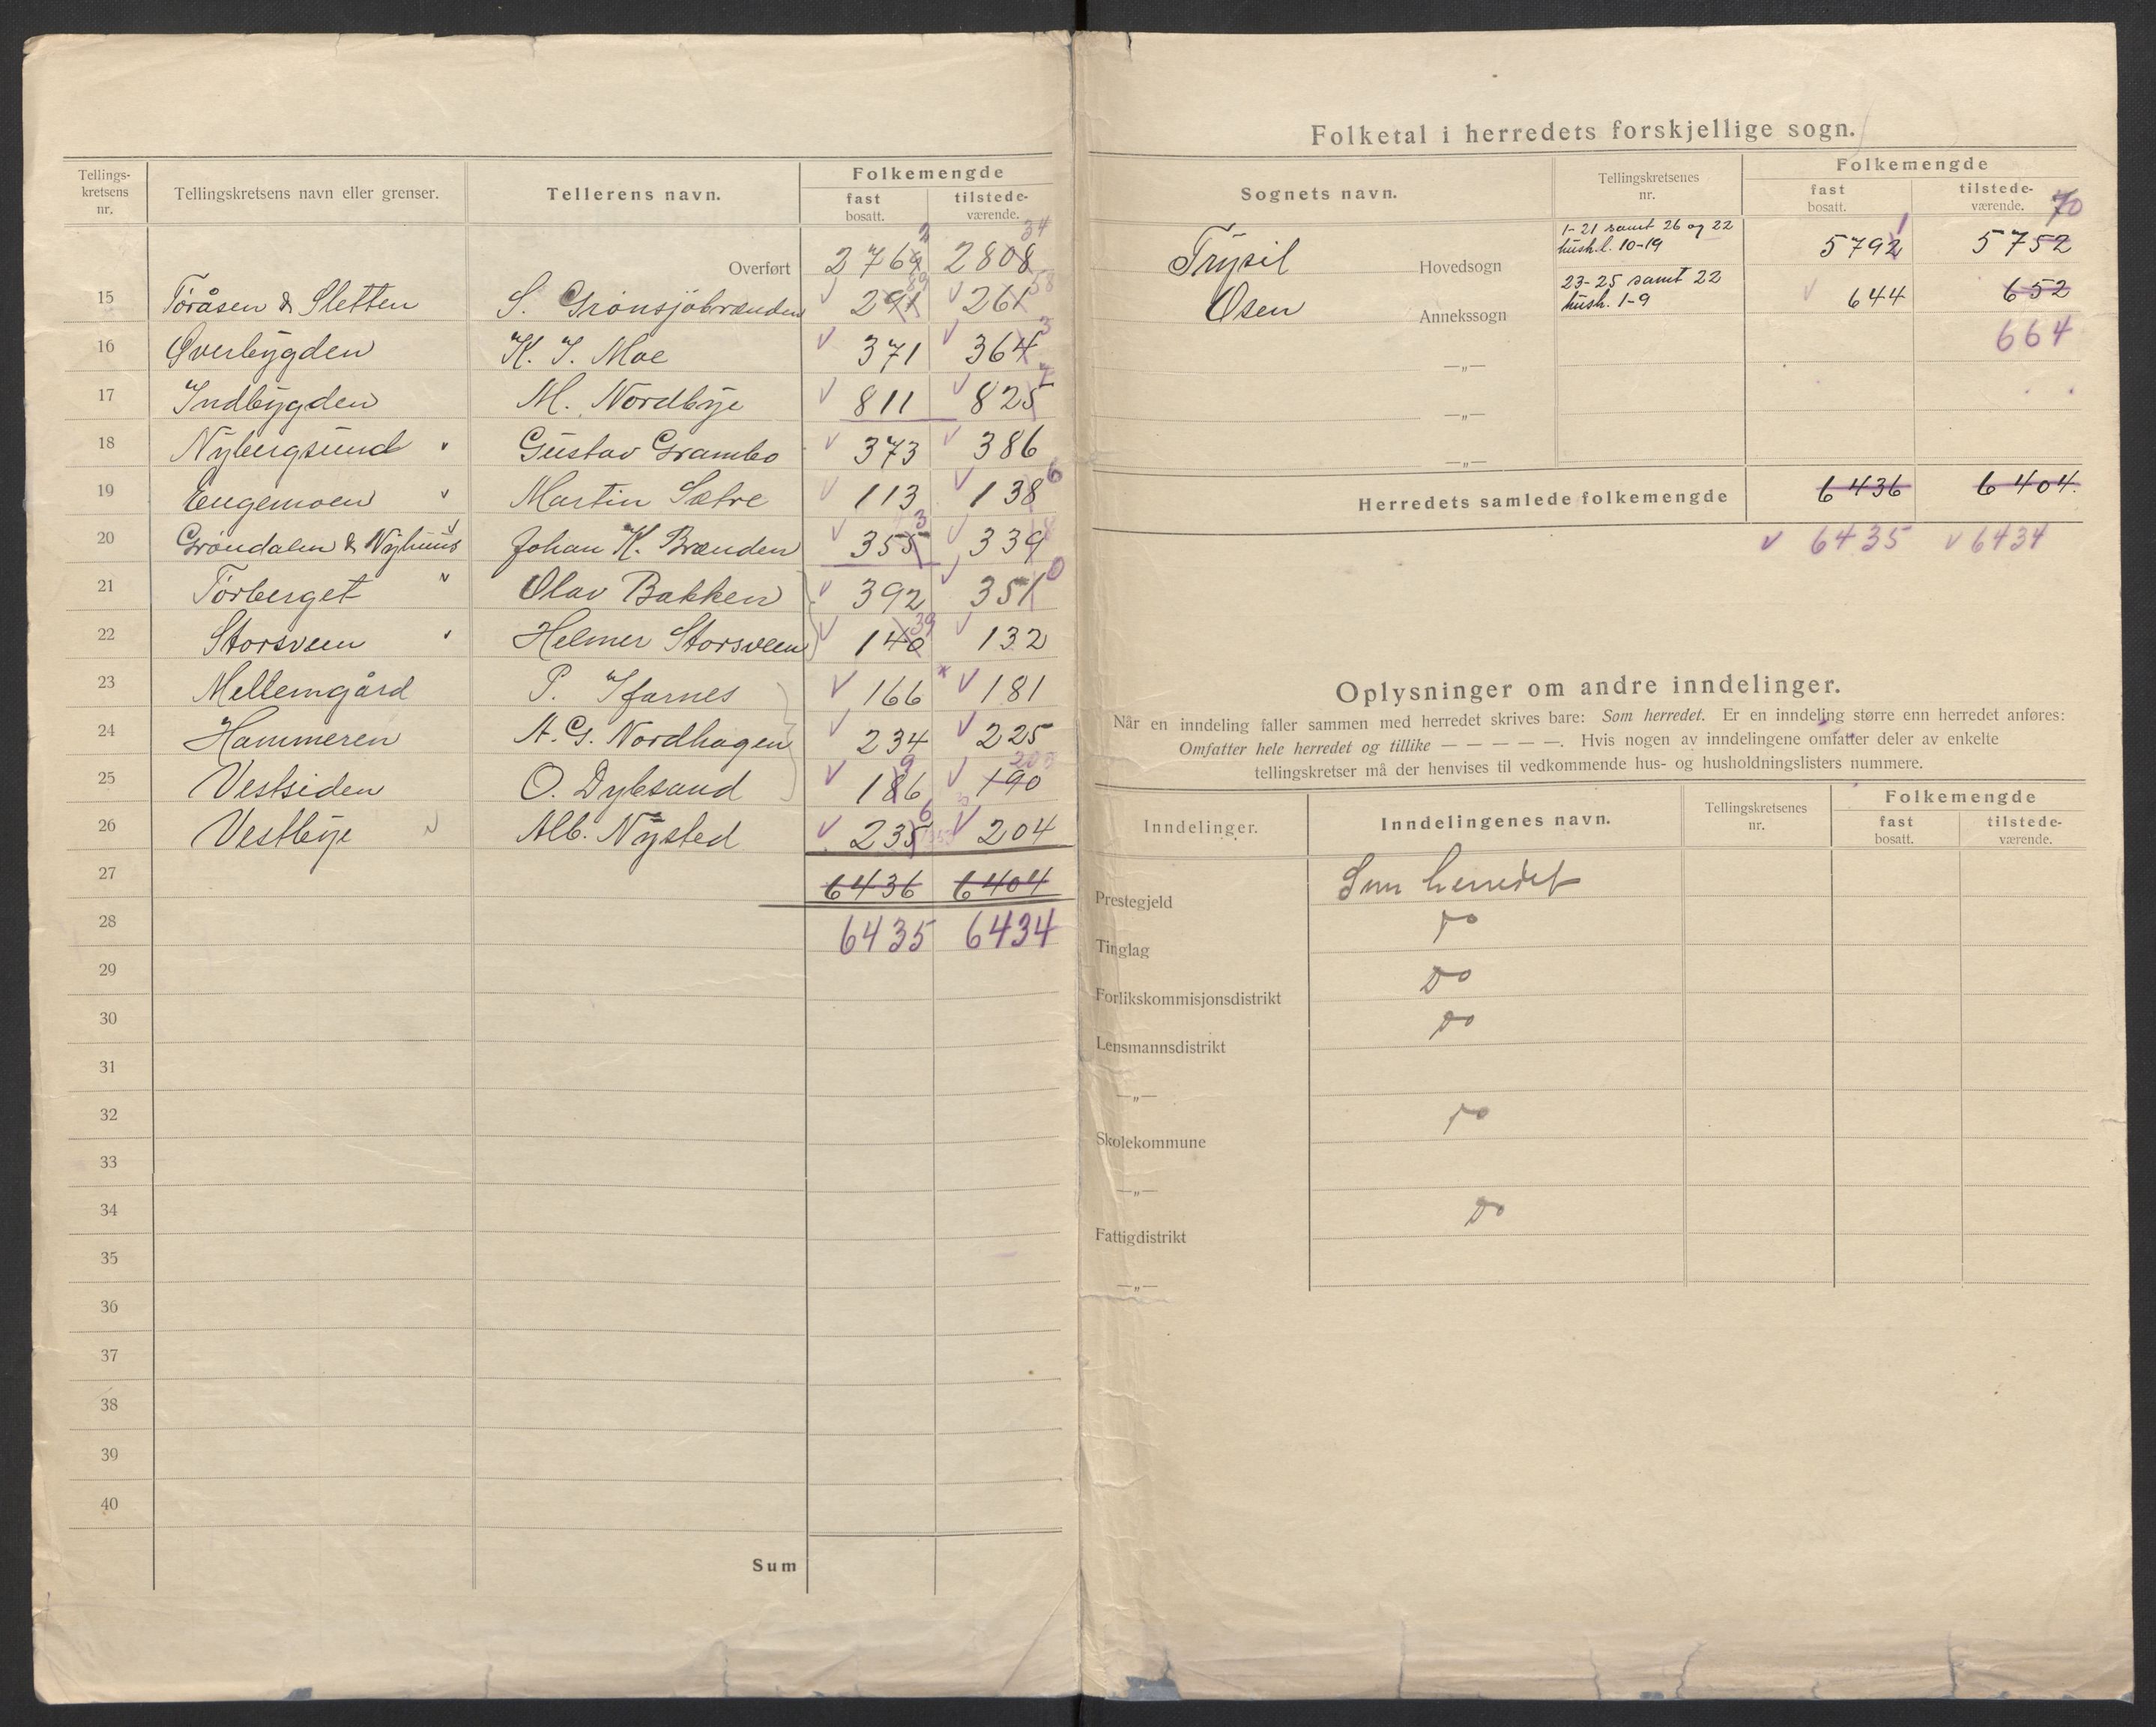 Tellings-
kretsens
nr.
Tellingskretsens navn eller grenser.
Tellerens navn.
Folkemengde
fast
bosatt.
tilstede-
værende.
Overført 2769 2 2808 34
15 Töråsen & Sletten S. Grönsjöbrænden 291 89 261 58
16 Øverbygden K. J. Moe 371 364 3
17 Indbygden M. Nordbye 811 825 7
18 Nybergsund Gustav Grambo 373 386
19 Engemoen Martin Sætre 113 138 6
20 Gröndalen & Nyhuus Johan K. Brænden 355 3 339 8
21 Törberget Olav Bakken 392 351 0
22 Storsveen Helmer Storsveen 140 39 132
23 Mellemgård P. Ifarnes 166 181
24 Hammeren A. G. Nordhagen 234 225
25 Vestsiden O. Dybsand 186 9 190 200
26 Vestbye Alb. Nysted 235 6 204
27 6436 6404
28 6435 6434
29
30
31
32
33
34
35
36
37
38
39
40
Sum
Folketal i herredets forskjellige sogn.
Sognets navn.
Tellingskretsenes
nr.
Folkemengde
fast
bosatt.
tilstede-
værende.
Trysil Hovedsogn 1-21 samt 26 og 22 5792 1 5752 70
hush.l. 10-19
Osen Annekssogn 23-25 samt 22 644 652
hush. 1-9
664
—„—
—„—
—„—
Herredets samlede folkemengde 6436 6404.
6435 6434
Oplysninger om andre inndelinger.
Når en inndeling faller sammen med herredet skrives bare: Som herredet. Er en inndeling større enn herredet anføres:
Omfatter hele herredet og tillike — — — — —. Hvis nogen av inndelingene omfatter deler av enkelte
tellingskretser må der henvises til vedkommende hus- og husholdningslisters nummere.
Inndelinger.
Inndelingenes navn.
Tellingskretsenes
nr.
Folkemengde
fast
bosatt.
tilstede-
værende.
Prestegjeld Som herredet
Tinglag Do
Forlikskommisjonsdistrikt Do
Lensmannsdistrikt Do
—„—
Skolekommune Do
—„—
Fattigdistrikt Do
—„—